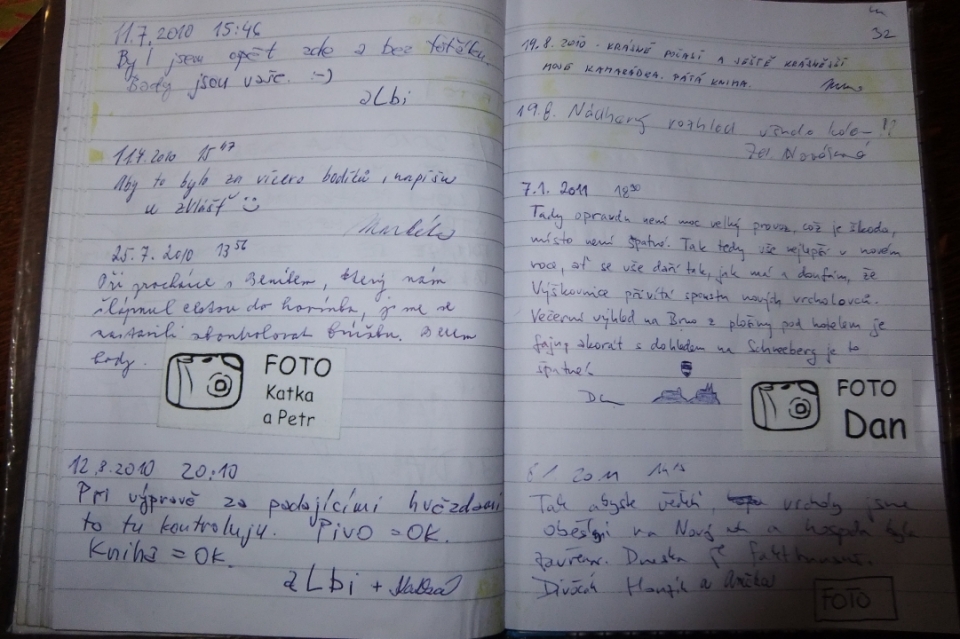 11.7.2010 15:46
Byl jsem opět zde a bez těžítku.
Body jsou vaše. :-)
aLbi
11.7.2010 15 47
Aby to bylo za vícero bodíků, napíšu
u zvlášť
Markéta
25.7.2010 13 56
Při procházce s , který nám
šlápnul cestou do , jsme se
zastavili zkontrolovat knížku.
body.
FOTO
Katka
a Petr
12.8.2010 20:10
Při výpravě za padajícími hvězdami
to tu kontroluju. Pivo = OK.
Kniha = OK.
aLbi +
32
19.8.2010 - KRÁSNÉ POČASÍ A JEŠTĚ KRÁSNĚJŠÍ
MOJE KAMARÁDKA. PÁTÁ KNIHA.
19.8. Nádherný rozhled všude kolem !!
7.1. 2011 18 30
Tady opravdu není moc velký provoz, což je škoda,
místo není špatné. Tak tedy vše nejlepší v novém
roce, ať se vše daří tak, jak má a doufám, že
Výškovnice přivítá spousta nových vrcholovců.
Večerní výhled na Brno z plošiny pod hotelem je
fajn, akorát s dohledem na Schneeberg je to
špatné.
Dan
FOTO
Dan
2011
Tak abyste věděli, vrcholy jsme
oběšli na Nový rok a hospoda byla
zavřená. Dneska je
Divočák Honzík a Anička
FOTO